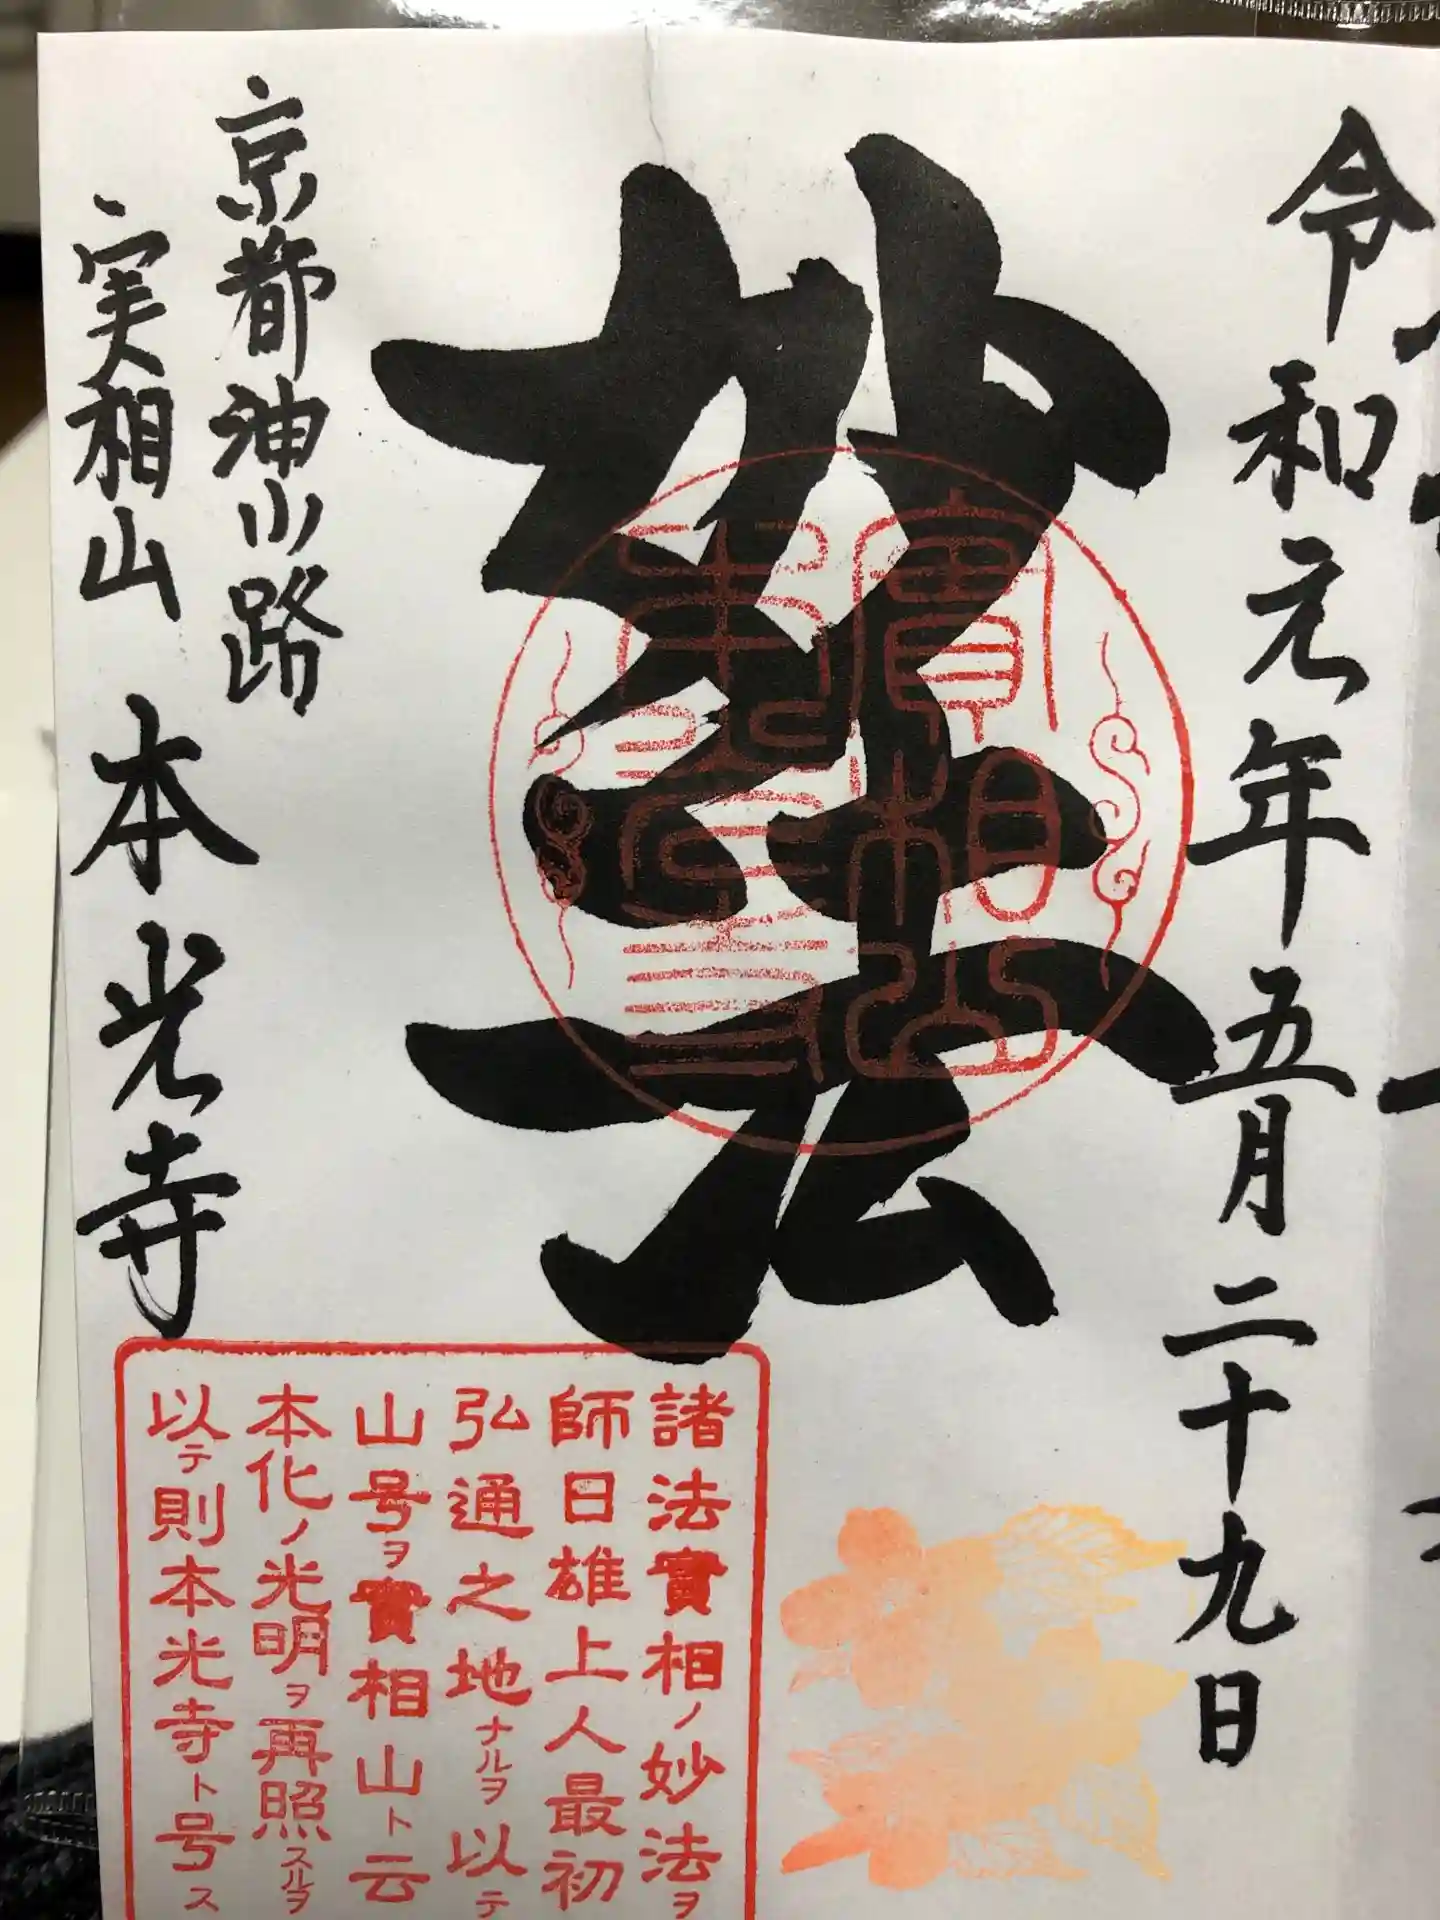 令和元年五月二十九日
妙法
京都油小路
実相山 本光寺
實相山
本光寺
諸法實相ノ妙法ヲ
師日雄上人最初
弘通之地ナルヲ以テ
山号ヲ實相山ト云
本化ノ光明ヲ再照スルヲ
以テ則本光寺ト号ス